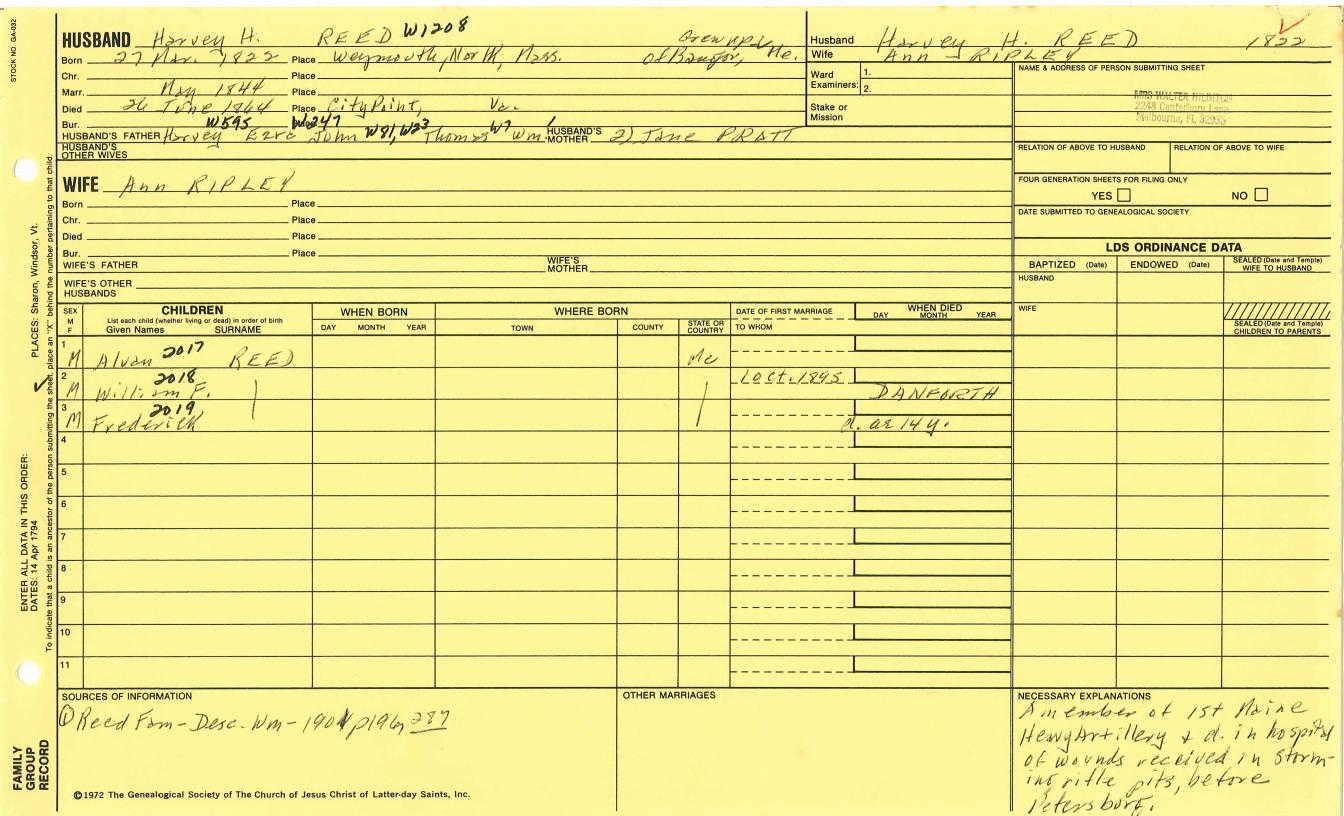 STOCK NO. GA-032
HUSBAND Harvey H. REED W1208
Born 27 Mar. 1822 Place Weymouth, Norfk, Mass. Grew up of Bangor, Me.
Chr. Place
Marr. May 1844 Place
Died 26 June 1864 Place City Point, Va.
Bur. Place
W595 W247
HUSBAND'S FATHER Harvey Ezra John W81, W23 Thomas W7 Wm. HUSBAND'S MOTHER 2) Jane PRATT
HUSBAND'S OTHER WIVES
Husband Harvey H. REED 1822
Wife Ann RIPLEY
Ward Examiners: 1.
2.
Stake or Mission
NAME & ADDRESS OF PERSON SUBMITTING SHEET
MRS WALTER
2248 Canterbury Lane
Melbourne, FL 32935
RELATION OF ABOVE TO HUSBAND RELATION OF ABOVE TO WIFE
FOUR GENERATION SHEETS FOR FILING ONLY
YES NO
DATE SUBMITTED TO GENEALOGICAL SOCIETY
WIFE Ann RIPLEY
Born Place
Chr. Place
Died Place
Bur. Place
WIFE'S FATHER WIFE'S MOTHER
WIFE'S OTHER HUSBANDS
LDS ORDINANCE DATA
BAPTIZED (Date) ENDOWED (Date) SEALED (Date and Temple) WIFE TO HUSBAND
HUSBAND
WIFE
SEALED (Date and Temple) CHILDREN TO PARENTS
SEX M F
CHILDREN
List each child (whether living or dead) in order of birth
Given Names SURNAME
WHEN BORN
DAY MONTH YEAR
WHERE BORN
TOWN COUNTY STATE OR COUNTRY
DATE OF FIRST MARRIAGE
TO WHOM
WHEN DIED
DAY MONTH YEAR
1 M Alvan 2017 REED Me
2 M William F. 2018 1 Oct. 1895 DANFORTH
3 M Frederick 2019 d. ae 14 y.
4
5
6
7
8
9
10
11
SOURCES OF INFORMATION
① Reed Fam - Desc. Wm - 1901 p196, 287
OTHER MARRIAGES
NECESSARY EXPLANATIONS
A member of 1st Maine
Heavy Artillery & d. in hospital
of wounds received in storm-
ing rifle pits, before
Petersburg.
©1972 The Genealogical Society of The Church of Jesus Christ of Latter-day Saints, Inc.
ENTER ALL DATA IN THIS ORDER:
DATES: 14 Apr 1794 PLACES: Sharon, Windsor, Vt.
To indicate that a child is an ancestor of the person submitting the sheet, place an "X" behind the number pertaining to that child.
FAMILY
GROUP
RECORD